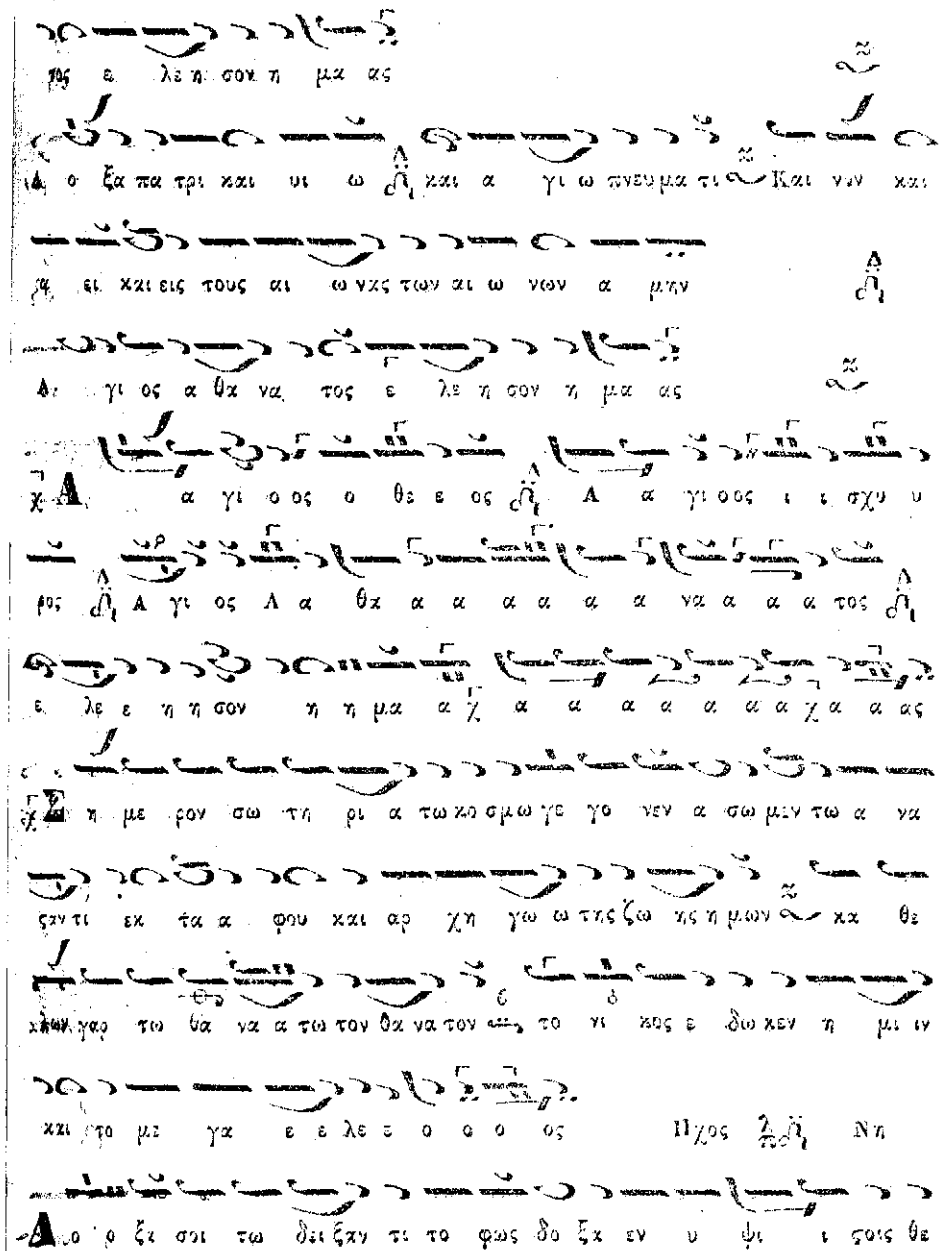 τος ε λε η σον η μα ας
Δ ο ξα πα τρι και υι ω και α γι ω πνευ μα τι Και νυν και
α ει και εις τους αι ω νας των αι ω νων α μην
Α γι ος α θα να τος ε λε η σον η μα ας
Α α γι ο ος ο θε ε ος Α α γι οος ι ι σχυ υ
ρος Α γι ος Α α θα α α α α α α να α α α τος
ε λε ε η η σον η η μα α α α α α α α α α α ας
Σ η με ρον σω τη ρι α τω κο σμω γε γο νεν α σω μεν τω α να
ςαν τι εκ τα α φου και αρ χη γω ω της ζω ης η μων κα θε
λων γαρ τω θα να α τω τον θα να τον το νι κος ε δω κεν η μι ιν
και το με γα ε ε λε ε ο ο ο ος Ηχος Νη
Δ ο ο ξα σοι τω δει ξαν τι το φως δο ξα εν υ ψι ι ςοις θε